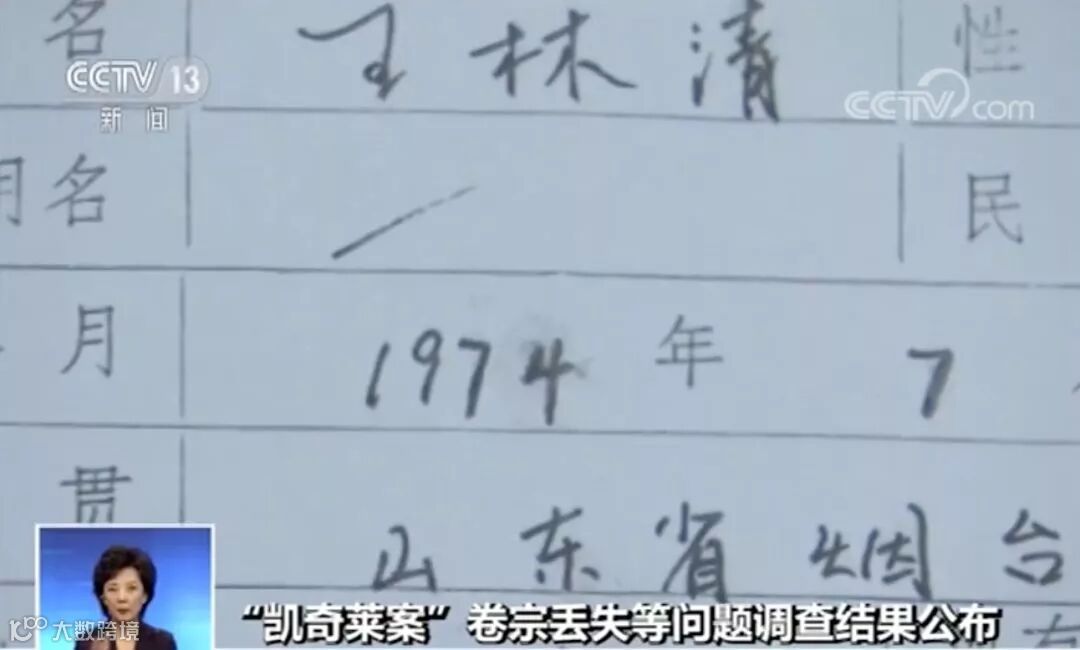 名 王林清 性
CCTV 13
新闻
CCTV.com
用名 / 民
月 1974 年 7
贯 山东省烟台
“凯奇莱案”卷宗丢失等问题调查结果公布
大数跨境